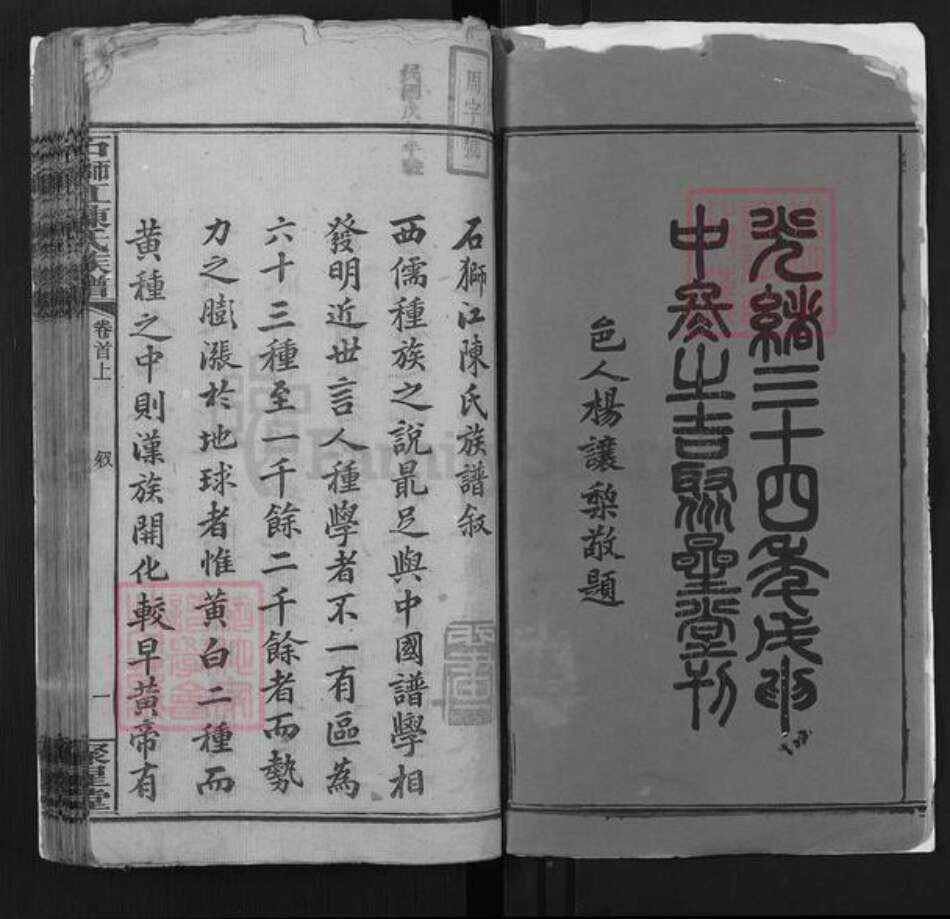 光緒三十四年戊申
中冬之吉聚星堂刊
邑人楊讓梨敬題
用字號
石獅江陳氏族譜敘
西儒種族之說最足與中國譜學相
發明近世言人種學者不一有區為
六十三種至一千餘二千餘者而勢
力之膨漲於地球者惟黃白二種而
黃種之中則漢族開化較早黃帝有
石獅江陳氏族譜
卷首上
敘
一
聚星堂